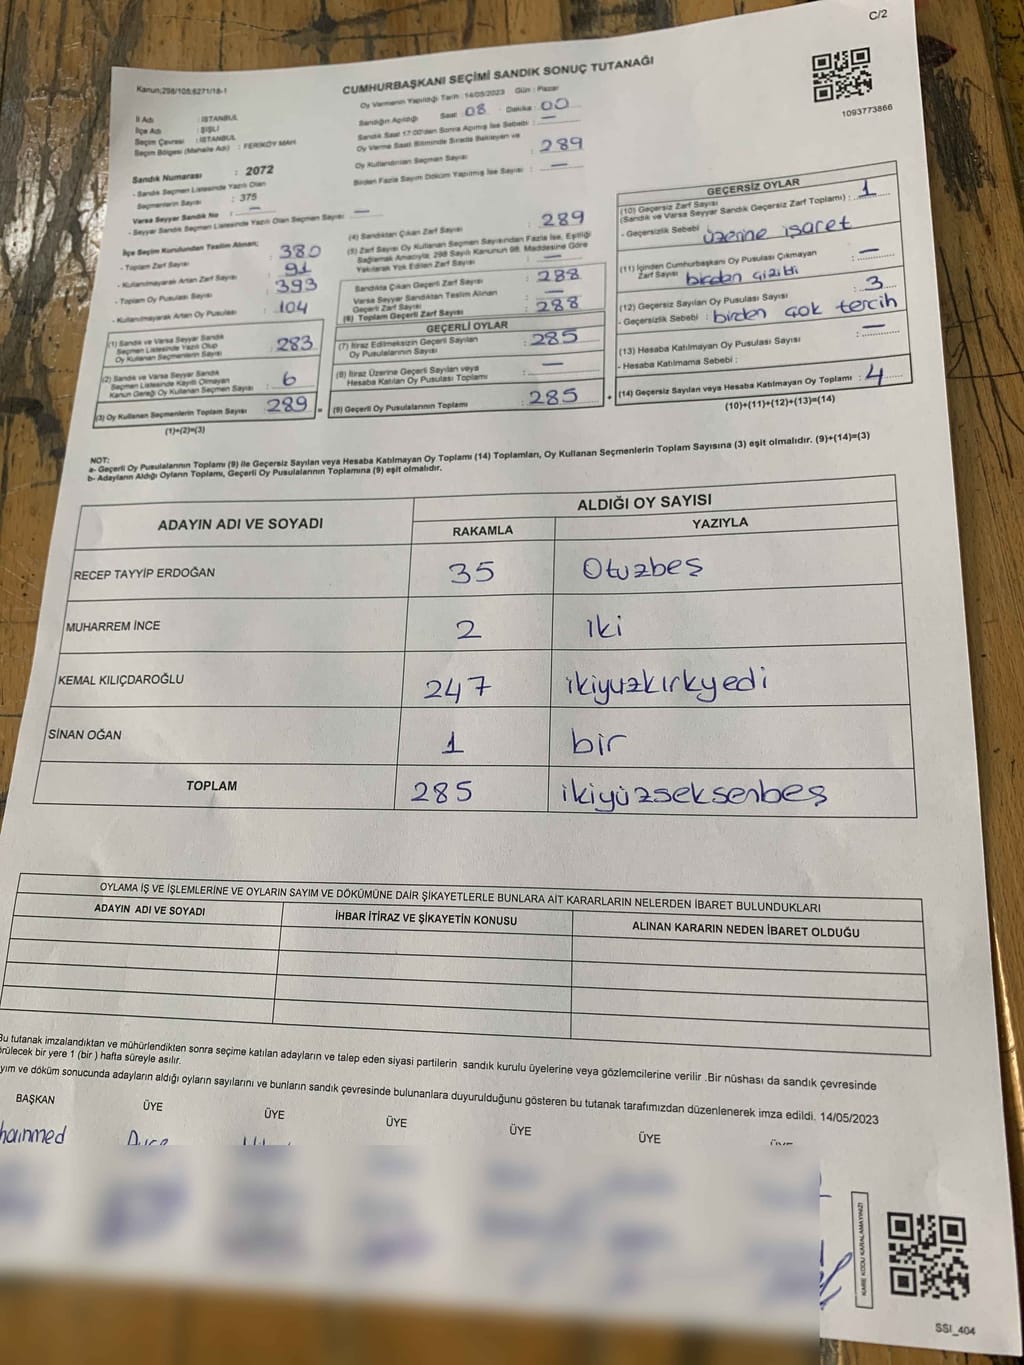 C/2
Kanun;298/105;6271/18-1
CUMHURBAŞKANI SEÇİMİ SANDIK SONUÇ TUTANAĞI
Oy Vermenin Yapıldığı Tarih : 14/05/2023 Gün : Pazar
1093773866
İl Adı : İSTANBUL
İlçe Adı : ŞİŞLİ
Seçim Çevresi : İSTANBUL
Seçim Bölgesi (Mahalle Adı) : FERİKÖY MAH.
Sandığın Açıldığı Saat : 08 Dakika : 00
Sandık Saat 17:00'den Sonra Açılmış İse Sebebi : —
Oy Verme Saati Bitiminde Sırada Bekleyen ve
Oy Kullandırılan Seçmen Sayısı : 289
Birden Fazla Sayım Döküm Yapılmış İse Sayısı : —
Sandık Numarası : 2072
- Sandık Seçmen Listesinde Yazılı Olan
Seçmenlerin Sayısı : 375
Varsa Seyyar Sandık No : —
- Seyyar Sandık Seçmen Listesinde Yazılı Olan Seçmen Sayısı : —
İlçe Seçim Kurulundan Teslim Alınan;
- Toplam Zarf Sayısı : 380
- Kullanılmayarak Artan Zarf Sayısı : 91
- Toplam Oy Pusulası Sayısı : 393
- Kullanılmayarak Artan Oy Pusulası : 104
(1) Sandık ve Varsa Seyyar Sandık
Seçmen Listesinde Yazılı Olup
Oy Kullanan Seçmenlerin Sayısı : 283
(2) Sandık ve Varsa Seyyar Sandık
Seçmen Listesinde Kayıtlı Olmayan
Kanun Gereği Oy Kullanan Seçmen Sayısı : 6
(3) Oy Kullanan Seçmenlerin Toplam Sayısı : 289
(1)+(2)=(3)
(4) Sandıktan Çıkan Zarf Sayısı : 289
(5) Zarf Sayısı Oy Kullanan Seçmen Sayısından Fazla İse, Eşitliği
Sağlamak Amacıyla; 298 Sayılı Kanunun 98. Maddesine Göre
Yakılarak Yok Edilen Zarf Sayısı : —
Sandıkta Çıkan Geçerli Zarf Sayısı : 288
Varsa Seyyar Sandıktan Teslim Alınan
Geçerli Zarf Sayısı : —
(6) Toplam Geçerli Zarf Sayısı : 288
GEÇERLİ OYLAR
(7) İtiraz Edilmeksizin Geçerli Sayılan
Oy Pusulalarının Sayısı : 285
(8) İtiraz Üzerine Geçerli Sayılan veya
Hesaba Katılan Oy Pusulası Toplamı : —
(9) Geçerli Oy Pusulalarının Toplamı : 285
GEÇERSİZ OYLAR
(10) Geçersiz Zarf Sayısı
(Sandık ve Varsa Seyyar Sandık Geçersiz Zarf Toplamı) : 1
- Geçersizlik Sebebi : üzerine işaret
(11) İçinden Cumhurbaşkanı Oy Pusulası Çıkmayan
Zarf Sayısı : —
birden
(12) Geçersiz Sayılan Oy Pusulası Sayısı : 3
- Geçersizlik Sebebi : birden çok tercih
(13) Hesaba Katılmayan Oy Pusulası Sayısı : —
- Hesaba Katılmama Sebebi :
(14) Geçersiz Sayılan veya Hesaba Katılmayan Oy Toplamı : 4
(10)+(11)+(12)+(13)=(14)
NOT:
a- Geçerli Oy Pusulalarının Toplamı (9) ile Geçersiz Sayılan veya Hesaba Katılmayan Oy Toplamı (14) Toplamları, Oy Kullanan Seçmenlerin Toplam Sayısına (3) eşit olmalıdır. (9)+(14)=(3)
b- Adayların Aldığı Oyların Toplamı, Geçerli Oy Pusulalarının Toplamına (9) eşit olmalıdır.
ADAYIN ADI VE SOYADI ALDIĞI OY SAYISI
RAKAMLA YAZIYLA
RECEP TAYYİP ERDOĞAN 35 Otuzbeş
MUHARREM İNCE 2 iki
KEMAL KILIÇDAROĞLU 247 ikiyuzkırkyedi
SİNAN OĞAN 1 bir
TOPLAM 285 ikiyüzseksenbeş
OYLAMA İŞ VE İŞLEMLERİNE VE OYLARIN SAYIM VE DÖKÜMÜNE DAİR ŞİKAYETLERLE BUNLARA AİT KARARLARIN NELERDEN İBARET BULUNDUKLARI
ADAYIN ADI VE SOYADI İHBAR İTİRAZ VE ŞİKAYETİN KONUSU ALINAN KARARIN NEDEN İBARET OLDUĞU
Bu tutanak imzalandıktan ve mühürlendikten sonra seçime katılan adayların ve talep eden siyasi partilerin sandık kurulu üyelerine veya gözlemcilerine verilir .Bir nüshası da sandık çevresinde
örülecek bir yere 1 (bir ) hafta süreyle asılır.
yım ve döküm sonucunda adayların aldığı oyların sayılarını ve bunların sandık çevresinde bulunanlara duyurulduğunu gösteren bu tutanak tarafımızdan düzenlenerek imza edildi. 14/05/2023
BAŞKAN ÜYE ÜYE ÜYE ÜYE ÜYE
KARE KODU KARALAMAYINIZ!
SSI_404